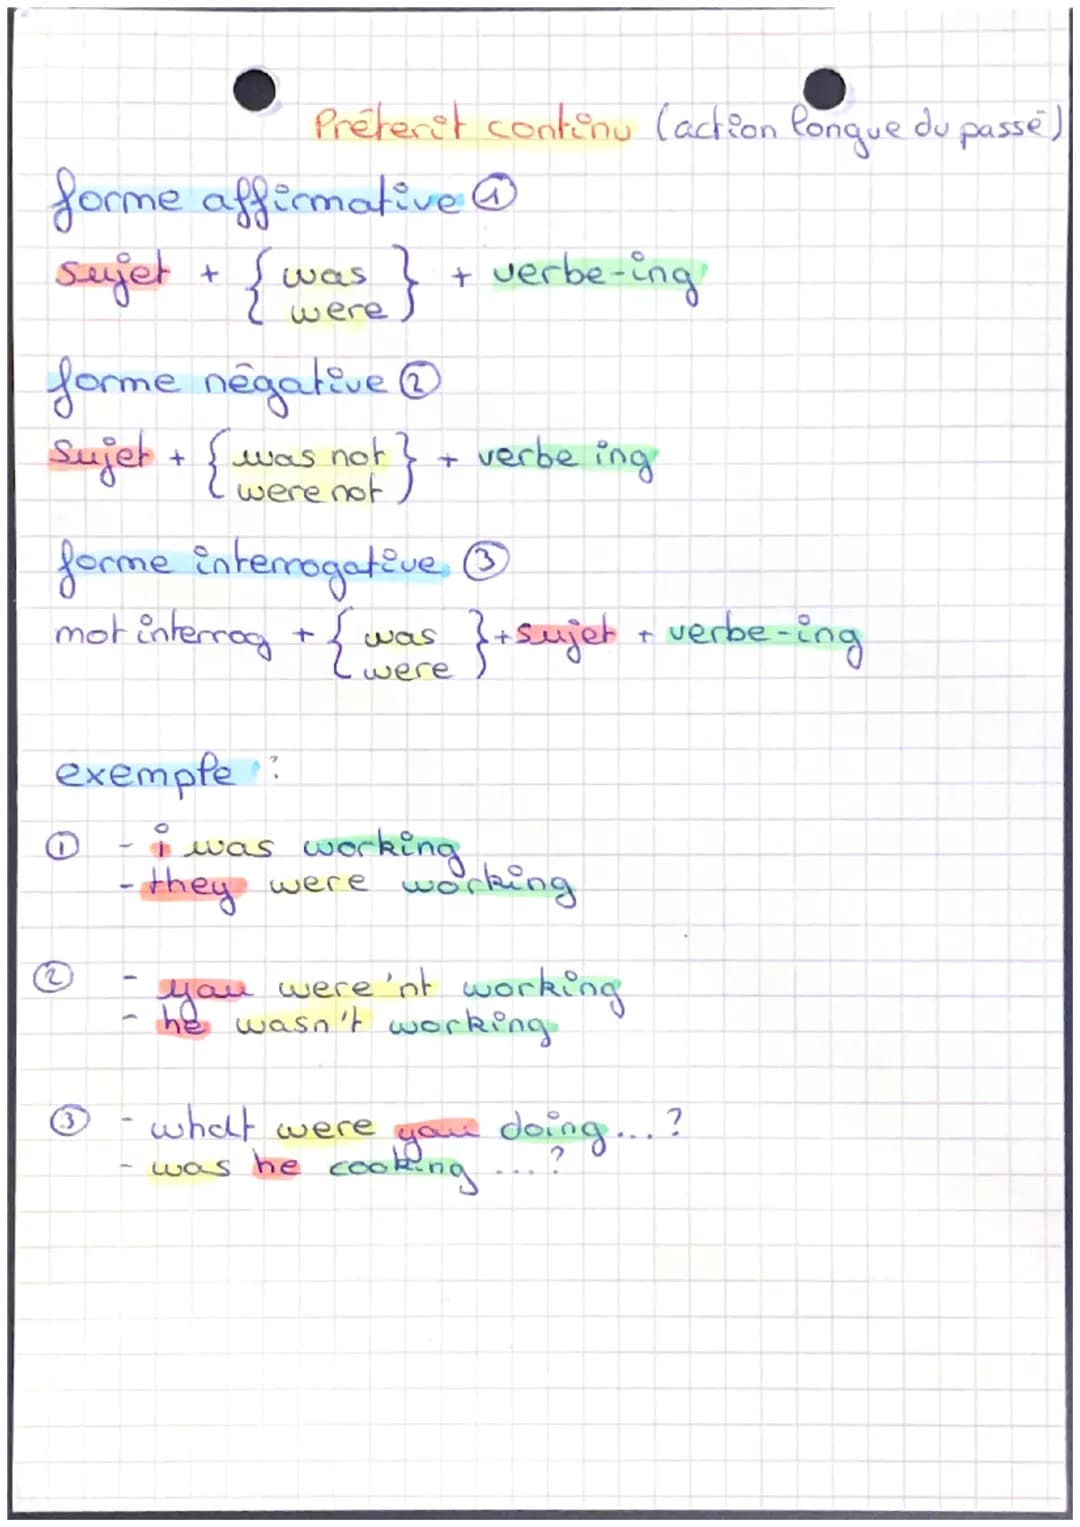 Préterit continu (action longue du passé)
forme affirmative ①
sujet + { was } + verbe-ing
were
forme négative ②
Sujet + { was not } + verbe ing
were not
forme interrogative ③
mot interrog + { was } + sujet + verbe-ing
were
exemple :
① - i was working
- they were working
② - you were'nt working
- he wasn't working
③ - what were you doing...?
- was he cooking ...?